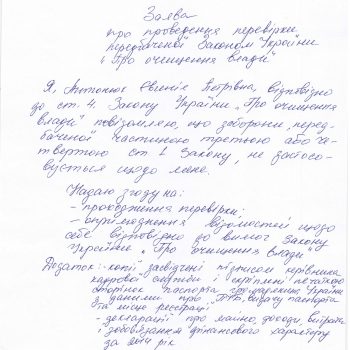 Заява
про проведення перевірки,
передбаченої Законом України
„Про очищення влади“
Я, Антонюк Євгенія Петрівна, відповідно
до ст. 4 Закону України „Про очищення
влади“ повідомляю, що заборони, перед-
бачені частиною третьою або че-
твертою ст. 1 Закону, не застосо-
вується щодо мене.
Надаю згоду на:
- проходження перевірки;
- оприлюднення відомостей щодо
себе відповідно до вимог Закону
України „Про очищення влади
Додаток: - копії засвідчені підписом керівника
кадрової служби і скріплені печаткою
сторінок паспорта громадянина України
з даними про ПІБ, видачу паспорта
та місце реєстрації
- декларації про майно, доходи, витрати
і зобов'язання фінансового характеру
за 2014 рік